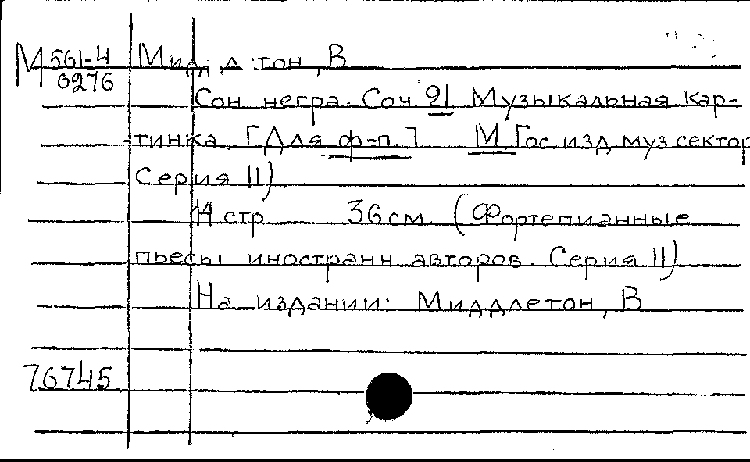 М 561-4 Мидд тон, В
0276
Сон негра. Соч. 91 Музыкальная кар-
тинка. [Для ф-п.] М. Гос. изд. муз сектор
Серия II)
стр 36 см. (Фортепианные
пьесы иностранн авторов. Серия II)
На издании: Миддлетон, В
76745